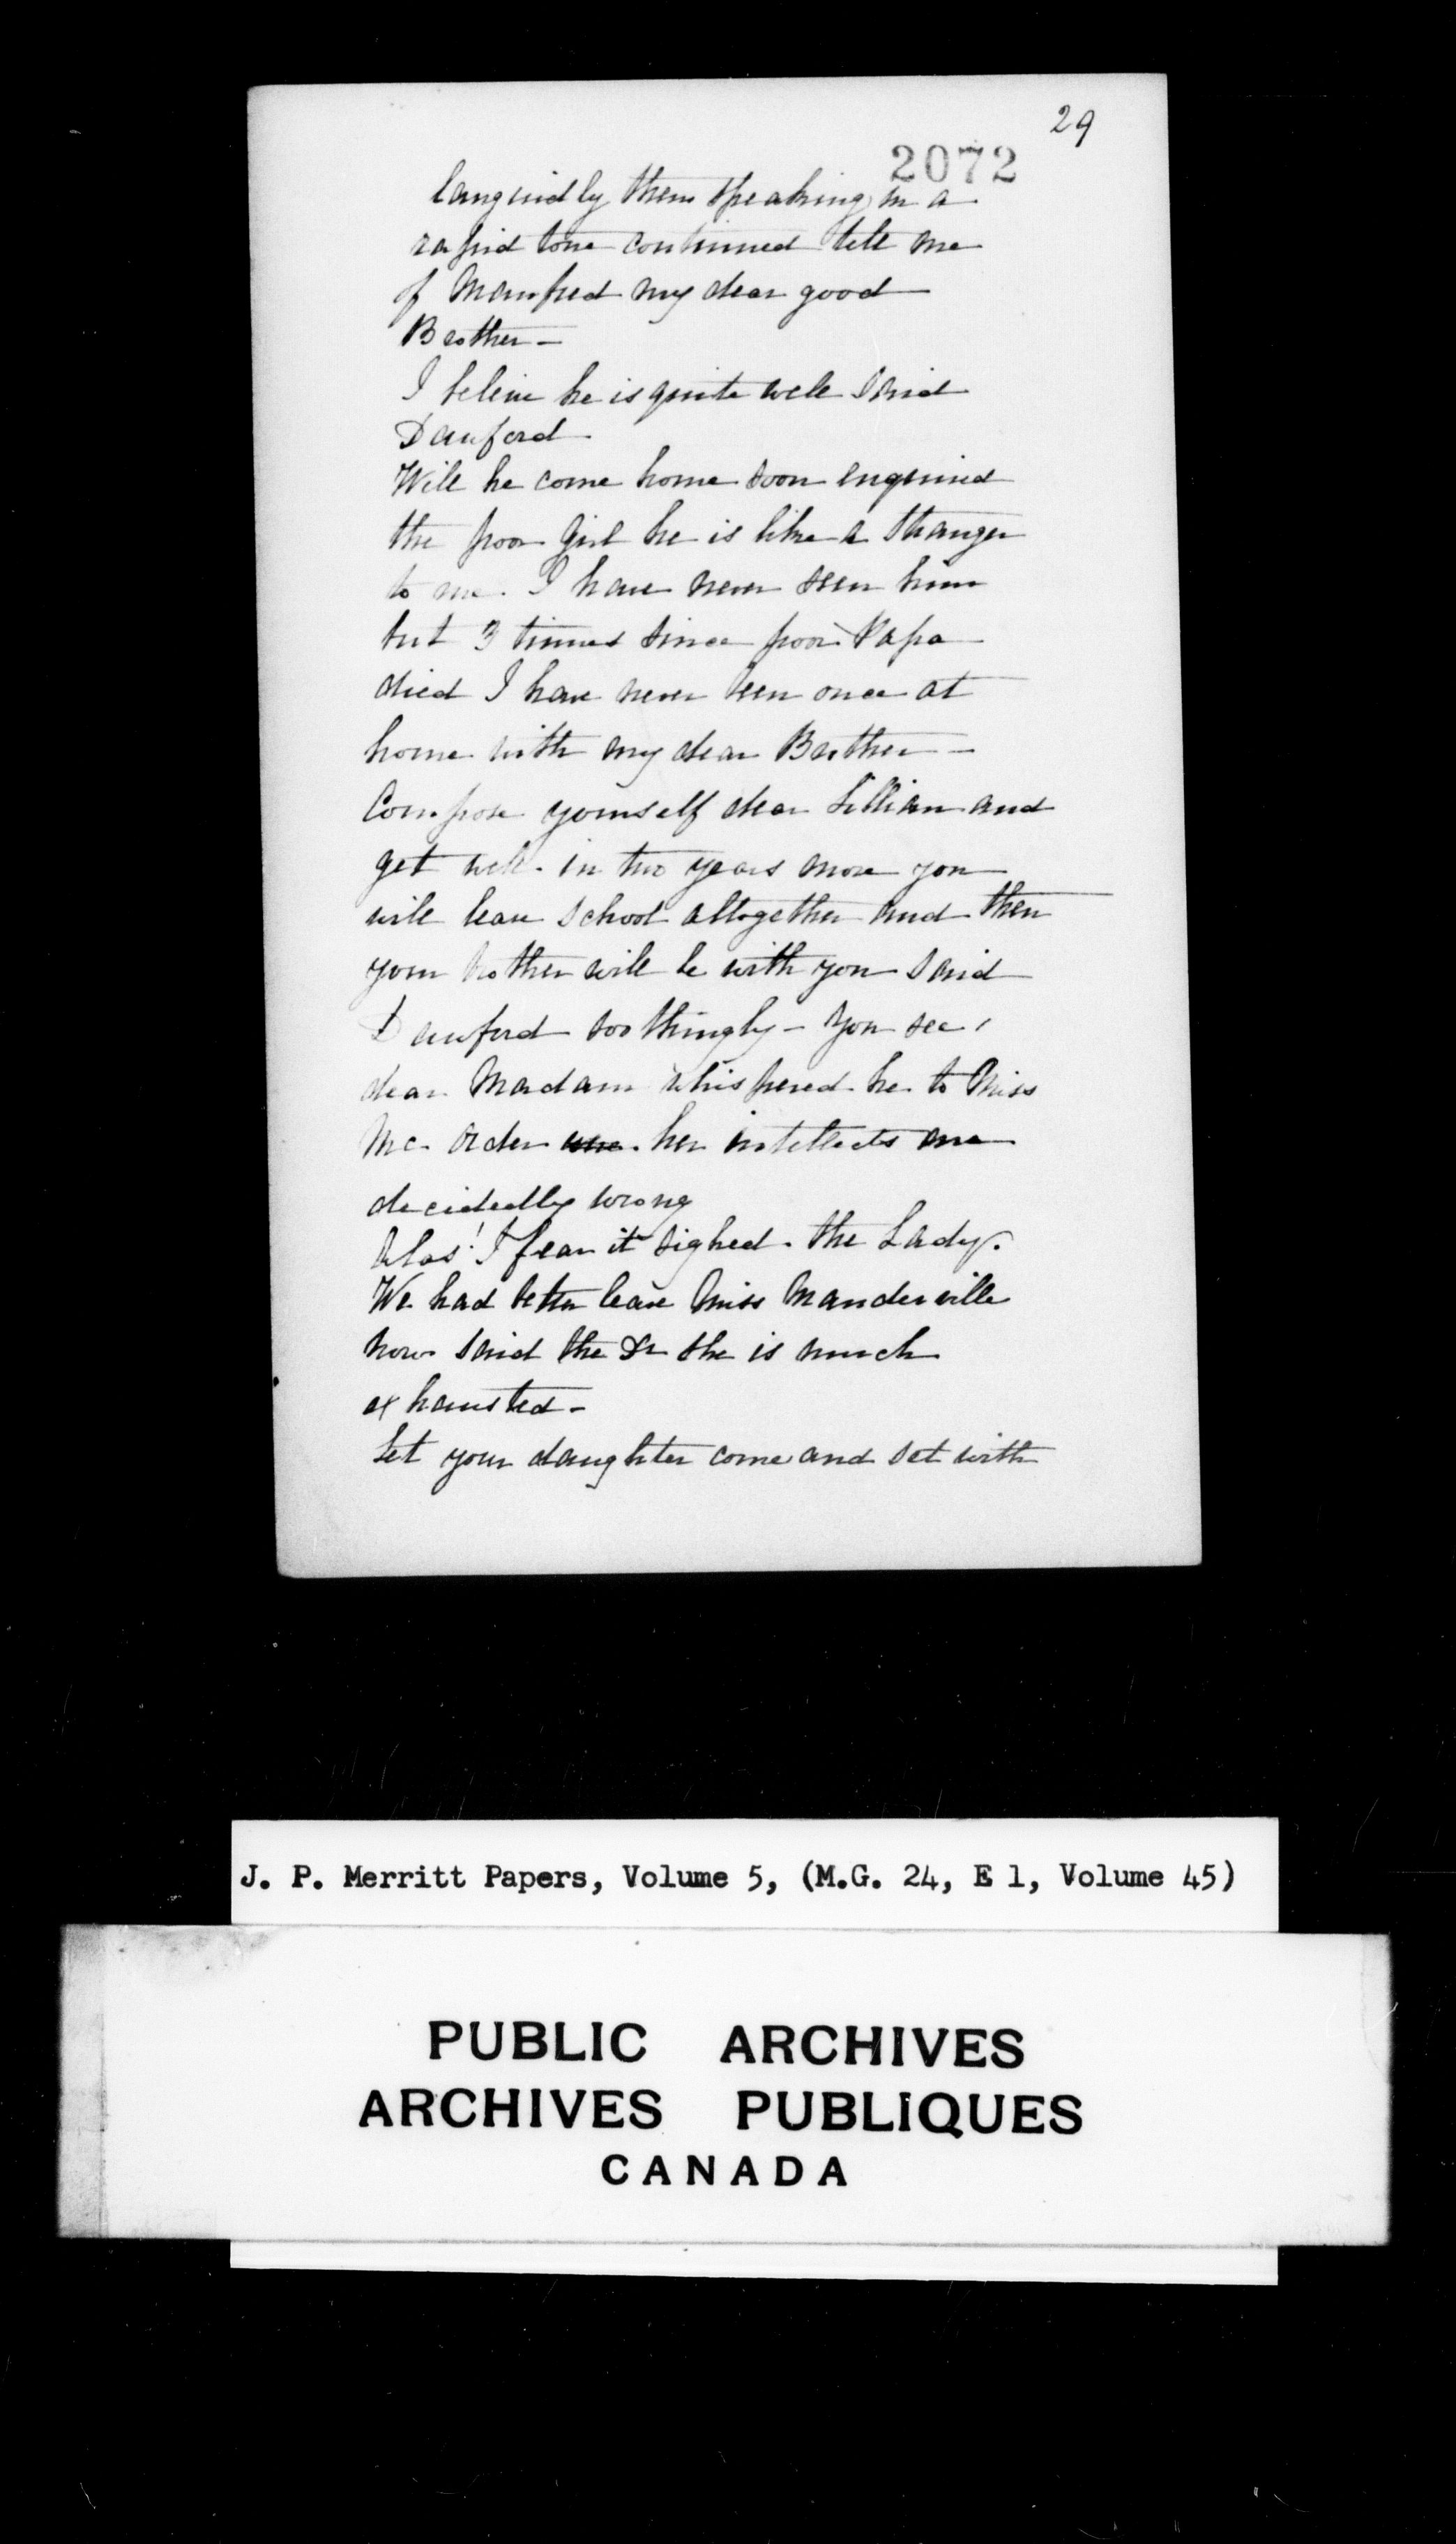 29
2072
languidly then speaking in a
rapid tone continued tell me
of Manfred my dear good
Brother —
I beleive he is quite well said
Danford
Will he come home soon enquired
the poor girl he is like a stranger
to me. I have never seen him
but 3 times since poor Papa
died I have never been once at
home with my dear Brother —
Compose yourself dear Lillian and
get well. in two years more you
will leave school altogether and then
your brother will be with you said
Danford soothingly — You see,
dear Madam whispered he to Miss
Mc. Order her intellects are
decidedly wrong
Alas! I fear it sighed the Lady.
We had better leave Miss Manderville
now said the Dr she is much
exhausted —
Let your daughter come and set with
J. P. Merritt Papers, Volume 5, (M.G. 24, E 1, Volume 45)
PUBLIC ARCHIVES
ARCHIVES PUBLIQUES
CANADA